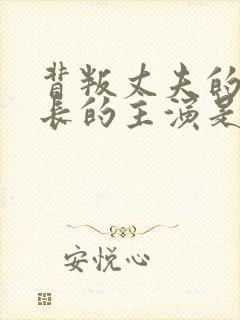 背叛丈夫的
长的主演是
安悦心